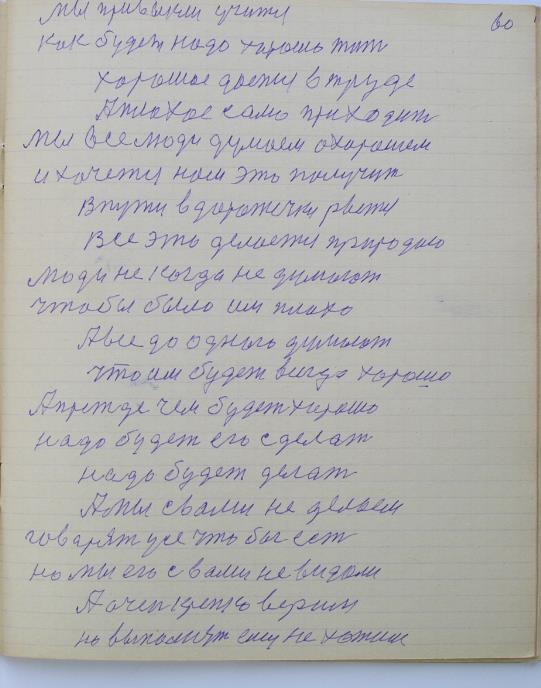 60
мы привыкли учитя
как будет надо хорошо жит
хорошое даетя в труде
А плохое само приходит
мы все люди думаем о хорошем
и хочетя нам это получит
В пути в дорожечки рветя
Все это делаетя природаю
люди не когда не думают
чтобы было им плохо
А все до одного думают
что им будет всигда хорошо
А прежде чем будет хорошо
надо будет его сделат
надо будет делат
А мы с вами не делаем
говарят усе что бог ест
но мы его с вами не видали
А очен крепко верим
но выполнит ему не хотим